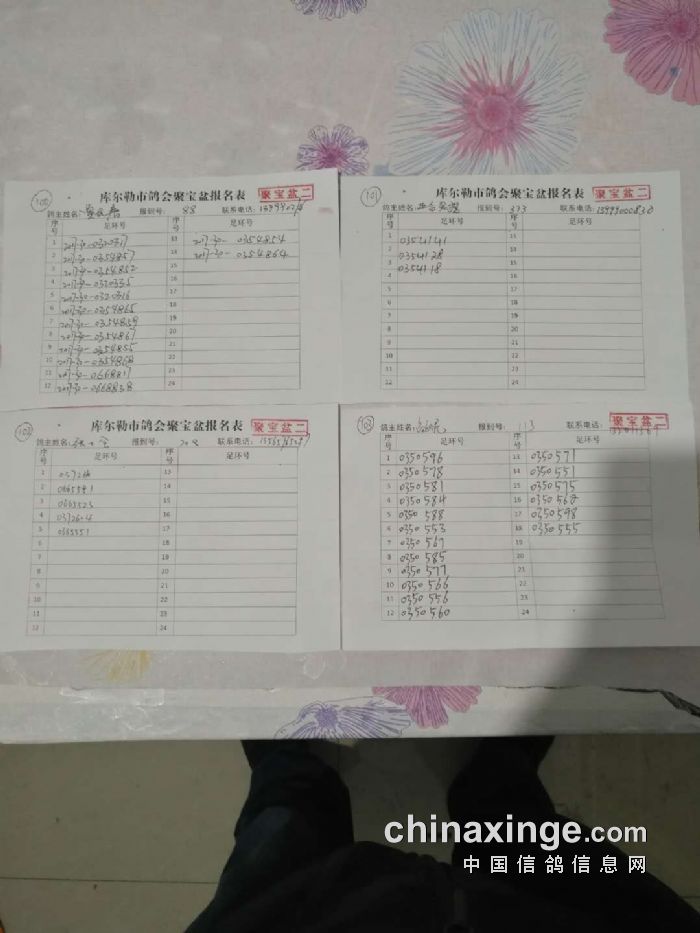 100
库尔勒市鸽会聚宝盆报名表 聚宝盆二
鸽主姓名: 报到号: 88 联系电话:
序号 足环号 序号 足环号
1 13 2017-30-0354854
2 2017-30-0354857 14 2017-30-0354864
3 2017-30-0354852 15
4 2017-30-0320335 16
5 2017-30-0320316 17
6 2017-30-0354865 18
7 2017-30-0354859 19
8 2017-30-0354861 20
9 2017-30-0354855 21
10 2017-30-0354868 22
11 2017-30-0668817 23
12 2017-30-0668838 24
101
库尔勒市鸽会聚宝盆报名表 聚宝盆二
鸽主姓名: 报到号: 333 联系电话: 15999000830
序号 足环号 序号 足环号
1 0354141 13
2 0354128 14
3 0354118 15
4 16
5 17
6 18
7 19
8 20
9 21
10 22
11 23
12 24
库尔勒市鸽会聚宝盆报名表 聚宝盆二
鸽主姓名: 报到号: 联系电话:
序号 足环号 序号 足环号
1 13
2 14
3 15
4 0372604 16
5 17
6 18
7 19
8 20
9 21
10 22
11 23
12 24
103
库尔勒市鸽会聚宝盆报名表 聚宝盆二
鸽主姓名: 报到号: 113 联系电话:
序号 足环号 序号 足环号
1 0350596 13 0350571
2 0350578 14 0350551
3 0350581 15 0350575
4 0350584 16 0350562
5 0350588 17 0350598
6 0350553 18 0350555
7 0350567 19
8 0350585 20
9 0350577 21
10 0350566 22
11 0350556 23
12 0350560 24
chinaxinge.com
中国信鸽信息网